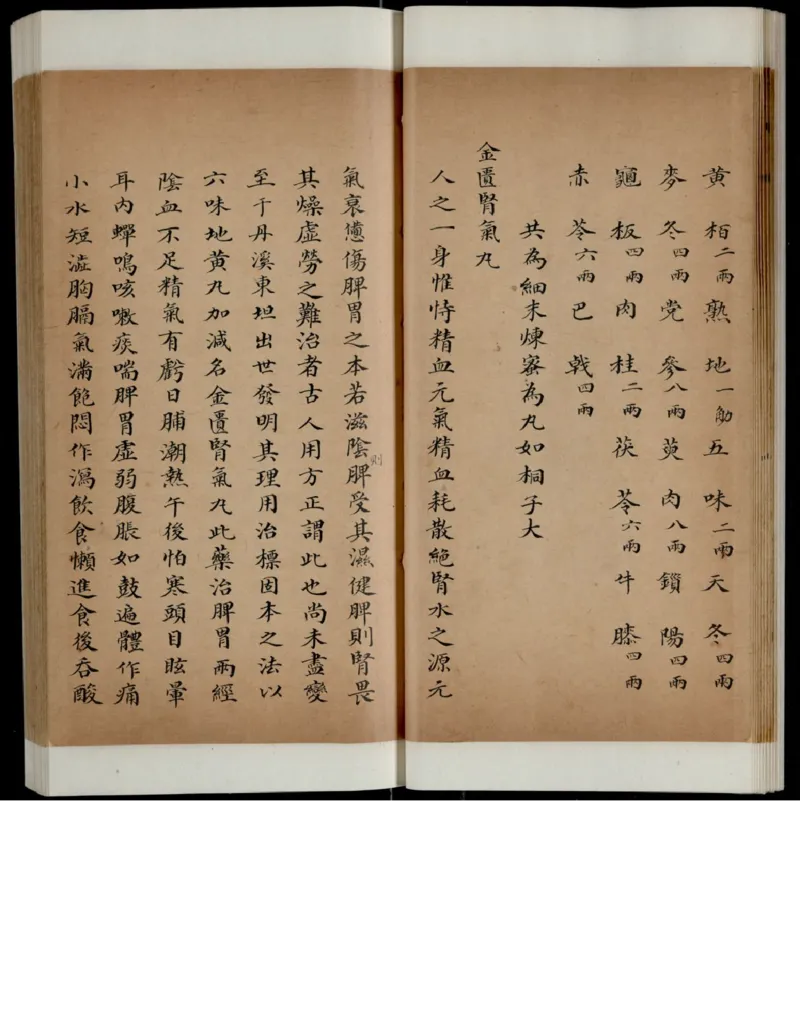 黄栢二兩熟地一觔五味二兩天冬四兩
麥冬四兩党參八兩萸肉八兩鎖陽四兩
龜板四兩肉桂二兩茯苓六兩牛膝四兩
赤苓六兩巴戟四兩
共為細末煉宻為丸如桐子大
金匱腎氣丸
人之一身惟恃精血元氣精血耗散絕腎水之源元
氣衰憊傷脾胃之本若滋陰則脾受其濕健脾則腎畏
其燥虛勞之難治者古人用方正謂此也尚未盡變
至于丹溪東垣出世發明其理用治標固本之法以
六味地黄丸加減名金匱腎氣丸此藥治脾胃兩經
陰血不足精氣有虧日脯潮熱午後怕寒頭目眩暈
耳內蟬鳴咳嗽痰喘脾胃虛弱腹脹如鼓遍體作痛
小水短澁胸膈氣滿飽悶作瀉飲食懶進食後吞酸